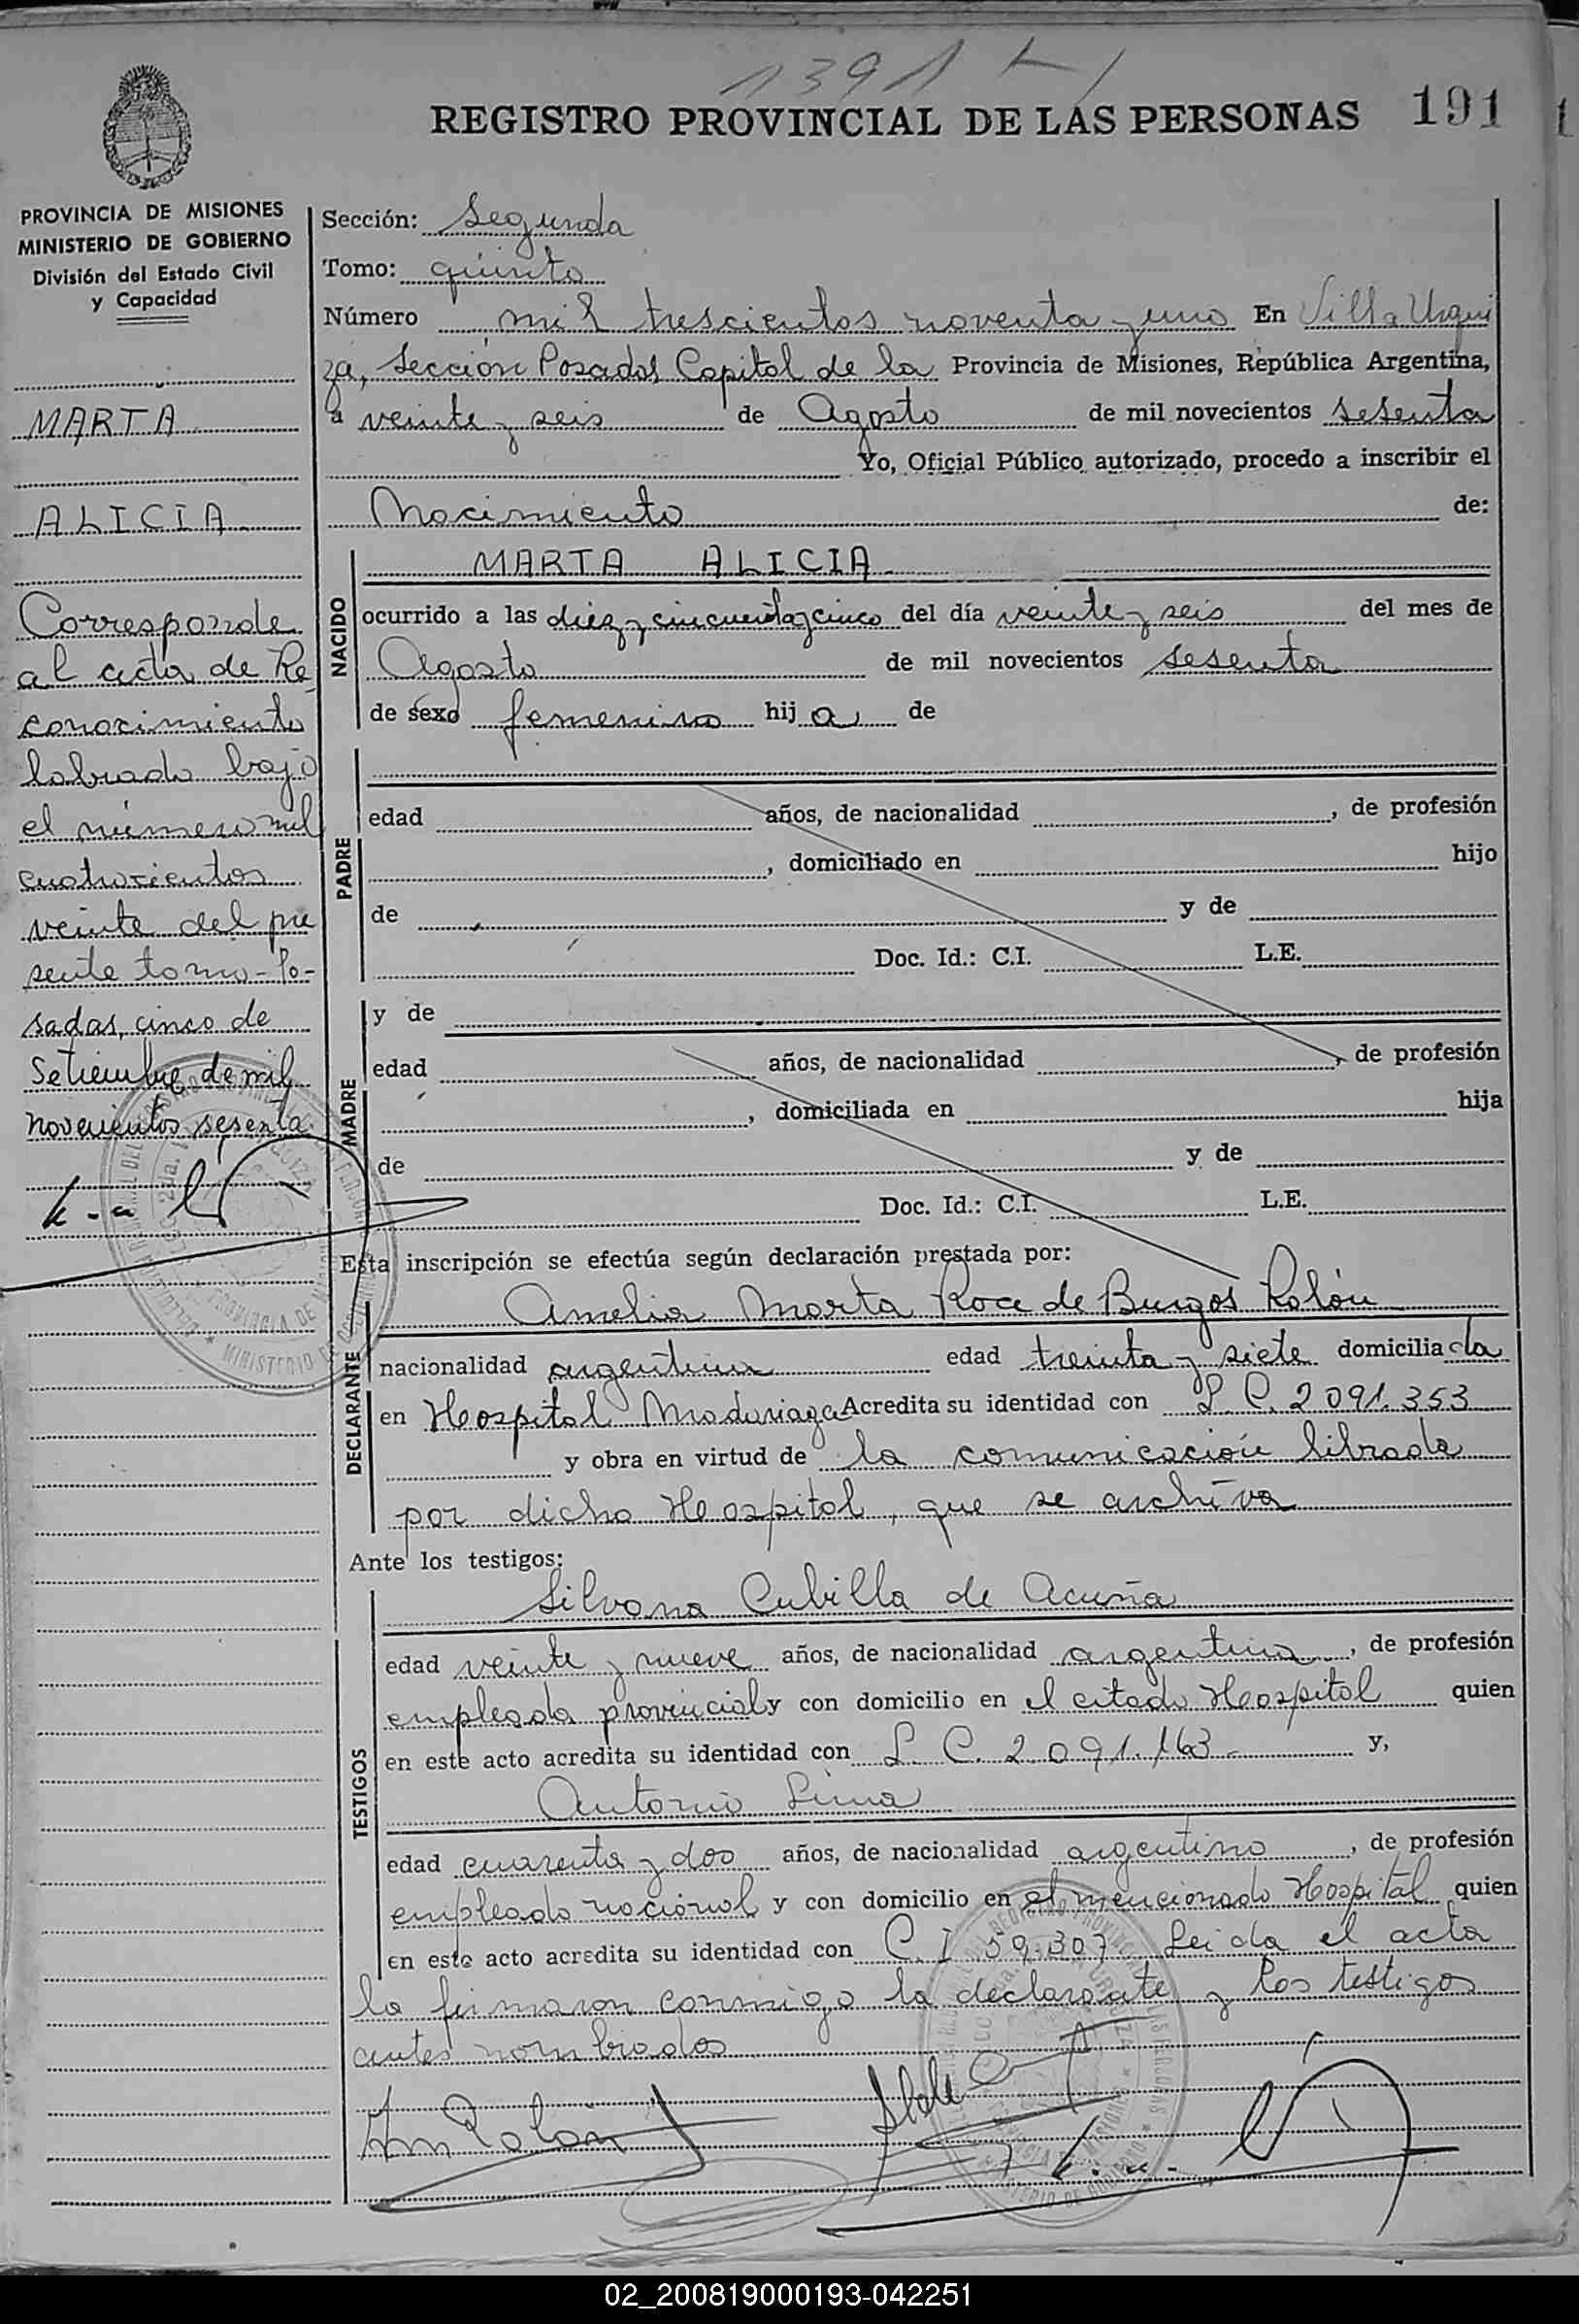 1391
REGISTRO PROVINCIAL DE LAS PERSONAS 191
PROVINCIA DE MISIONES
MINISTERIO DE GOBIERNO
División del Estado Civil
y Capacidad
MARTA
ALICIA
Corresponde
al acta de Re
conocimiento
labrado bajo
el número mil
cuatrocientos
veinte del pre
sente tomo - Po-
sadas, cinco de
Setiembre de mil
novecientos sesenta
Sección: Segunda
Tomo: quinto
Número mil trescientos noventa y uno En Villa Urqui
za, Sección Posadas Capital de la Provincia de Misiones, República Argentina,
a veinte y seis de Agosto de mil novecientos sesenta
Yo, Oficial Público autorizado, procedo a inscribir el
Nacimiento de:
NACIDO
MARTA ALICIA
ocurrido a las diez y cincuenta y cinco del día veinte y seis del mes de
Agosto de mil novecientos sesenta
de sexo femenino hij a de
PADRE
edad años, de nacionalidad , de profesión
, domiciliado en hijo
de y de
Doc. Id.: C.I. L.E.
MADRE
y de
edad años, de nacionalidad , de profesión
, domiciliada en hija
de y de
Doc. Id.: C.I. L.E.
Esta inscripción se efectúa según declaración prestada por:
DECLARANTE
Amelia Marta Roca de Burgos Rolón
nacionalidad argentina edad treinta y siete domicilia da
en Hospital Madariaga Acredita su identidad con L C. 2091.353
y obra en virtud de la comunicación librada
por dicho Hospital, que se archiva
Ante los testigos:
TESTIGOS
Silvana Cubilla de Acuña
edad veinte y nueve años, de nacionalidad argentina , de profesión
empleada provincial y con domicilio en el citado Hospital quien
en este acto acredita su identidad con L. C. 2091.163 - y,
Antonio Lima
edad cuarenta y dos años, de nacionalidad argentino , de profesión
empleado nacional y con domicilio en el mencionado Hospital quien
en este acto acredita su identidad con C. I 59.307 Leida el acta
la firmaron conmigo la declarante y los testigos
antes nombrados
02_200819000193-042251